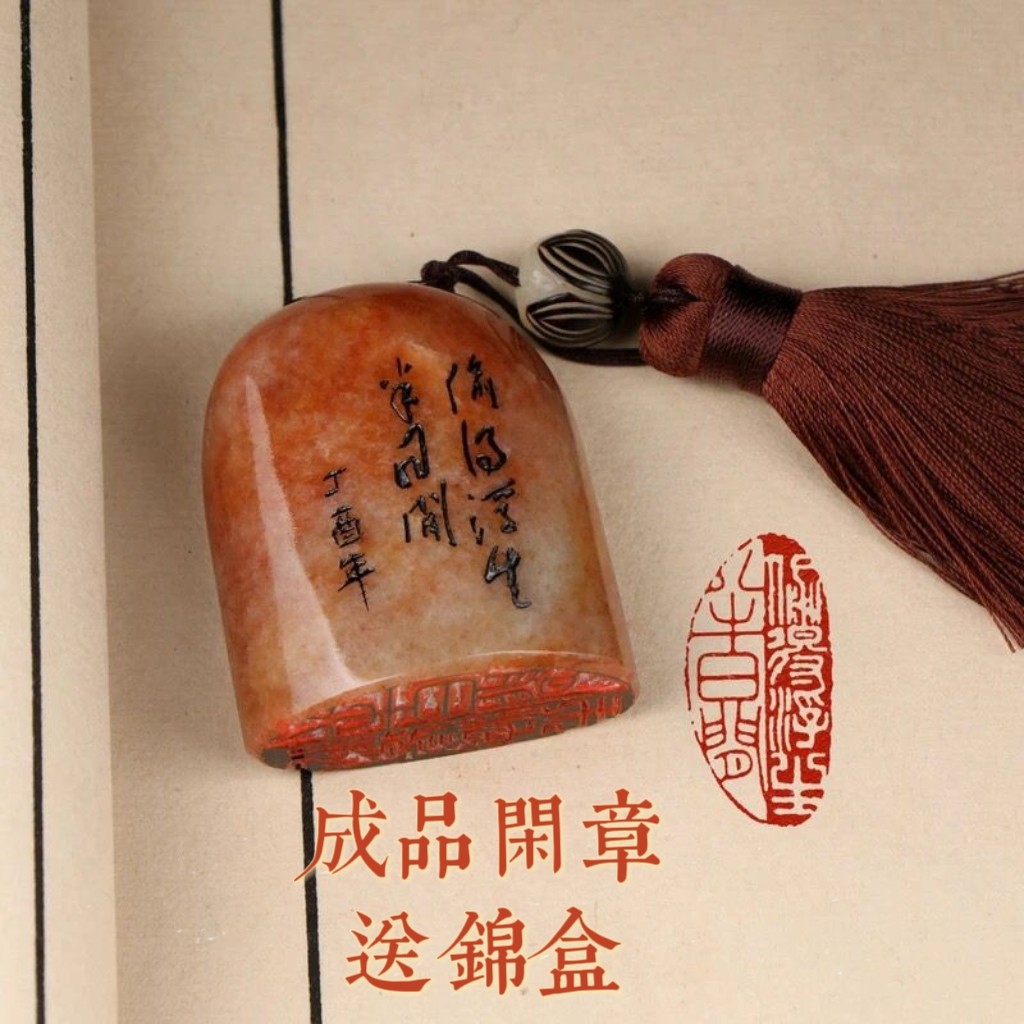 偷得浮生
半日閒
丁酉年
偷得浮生
半日閒
成品閑章
送錦盒